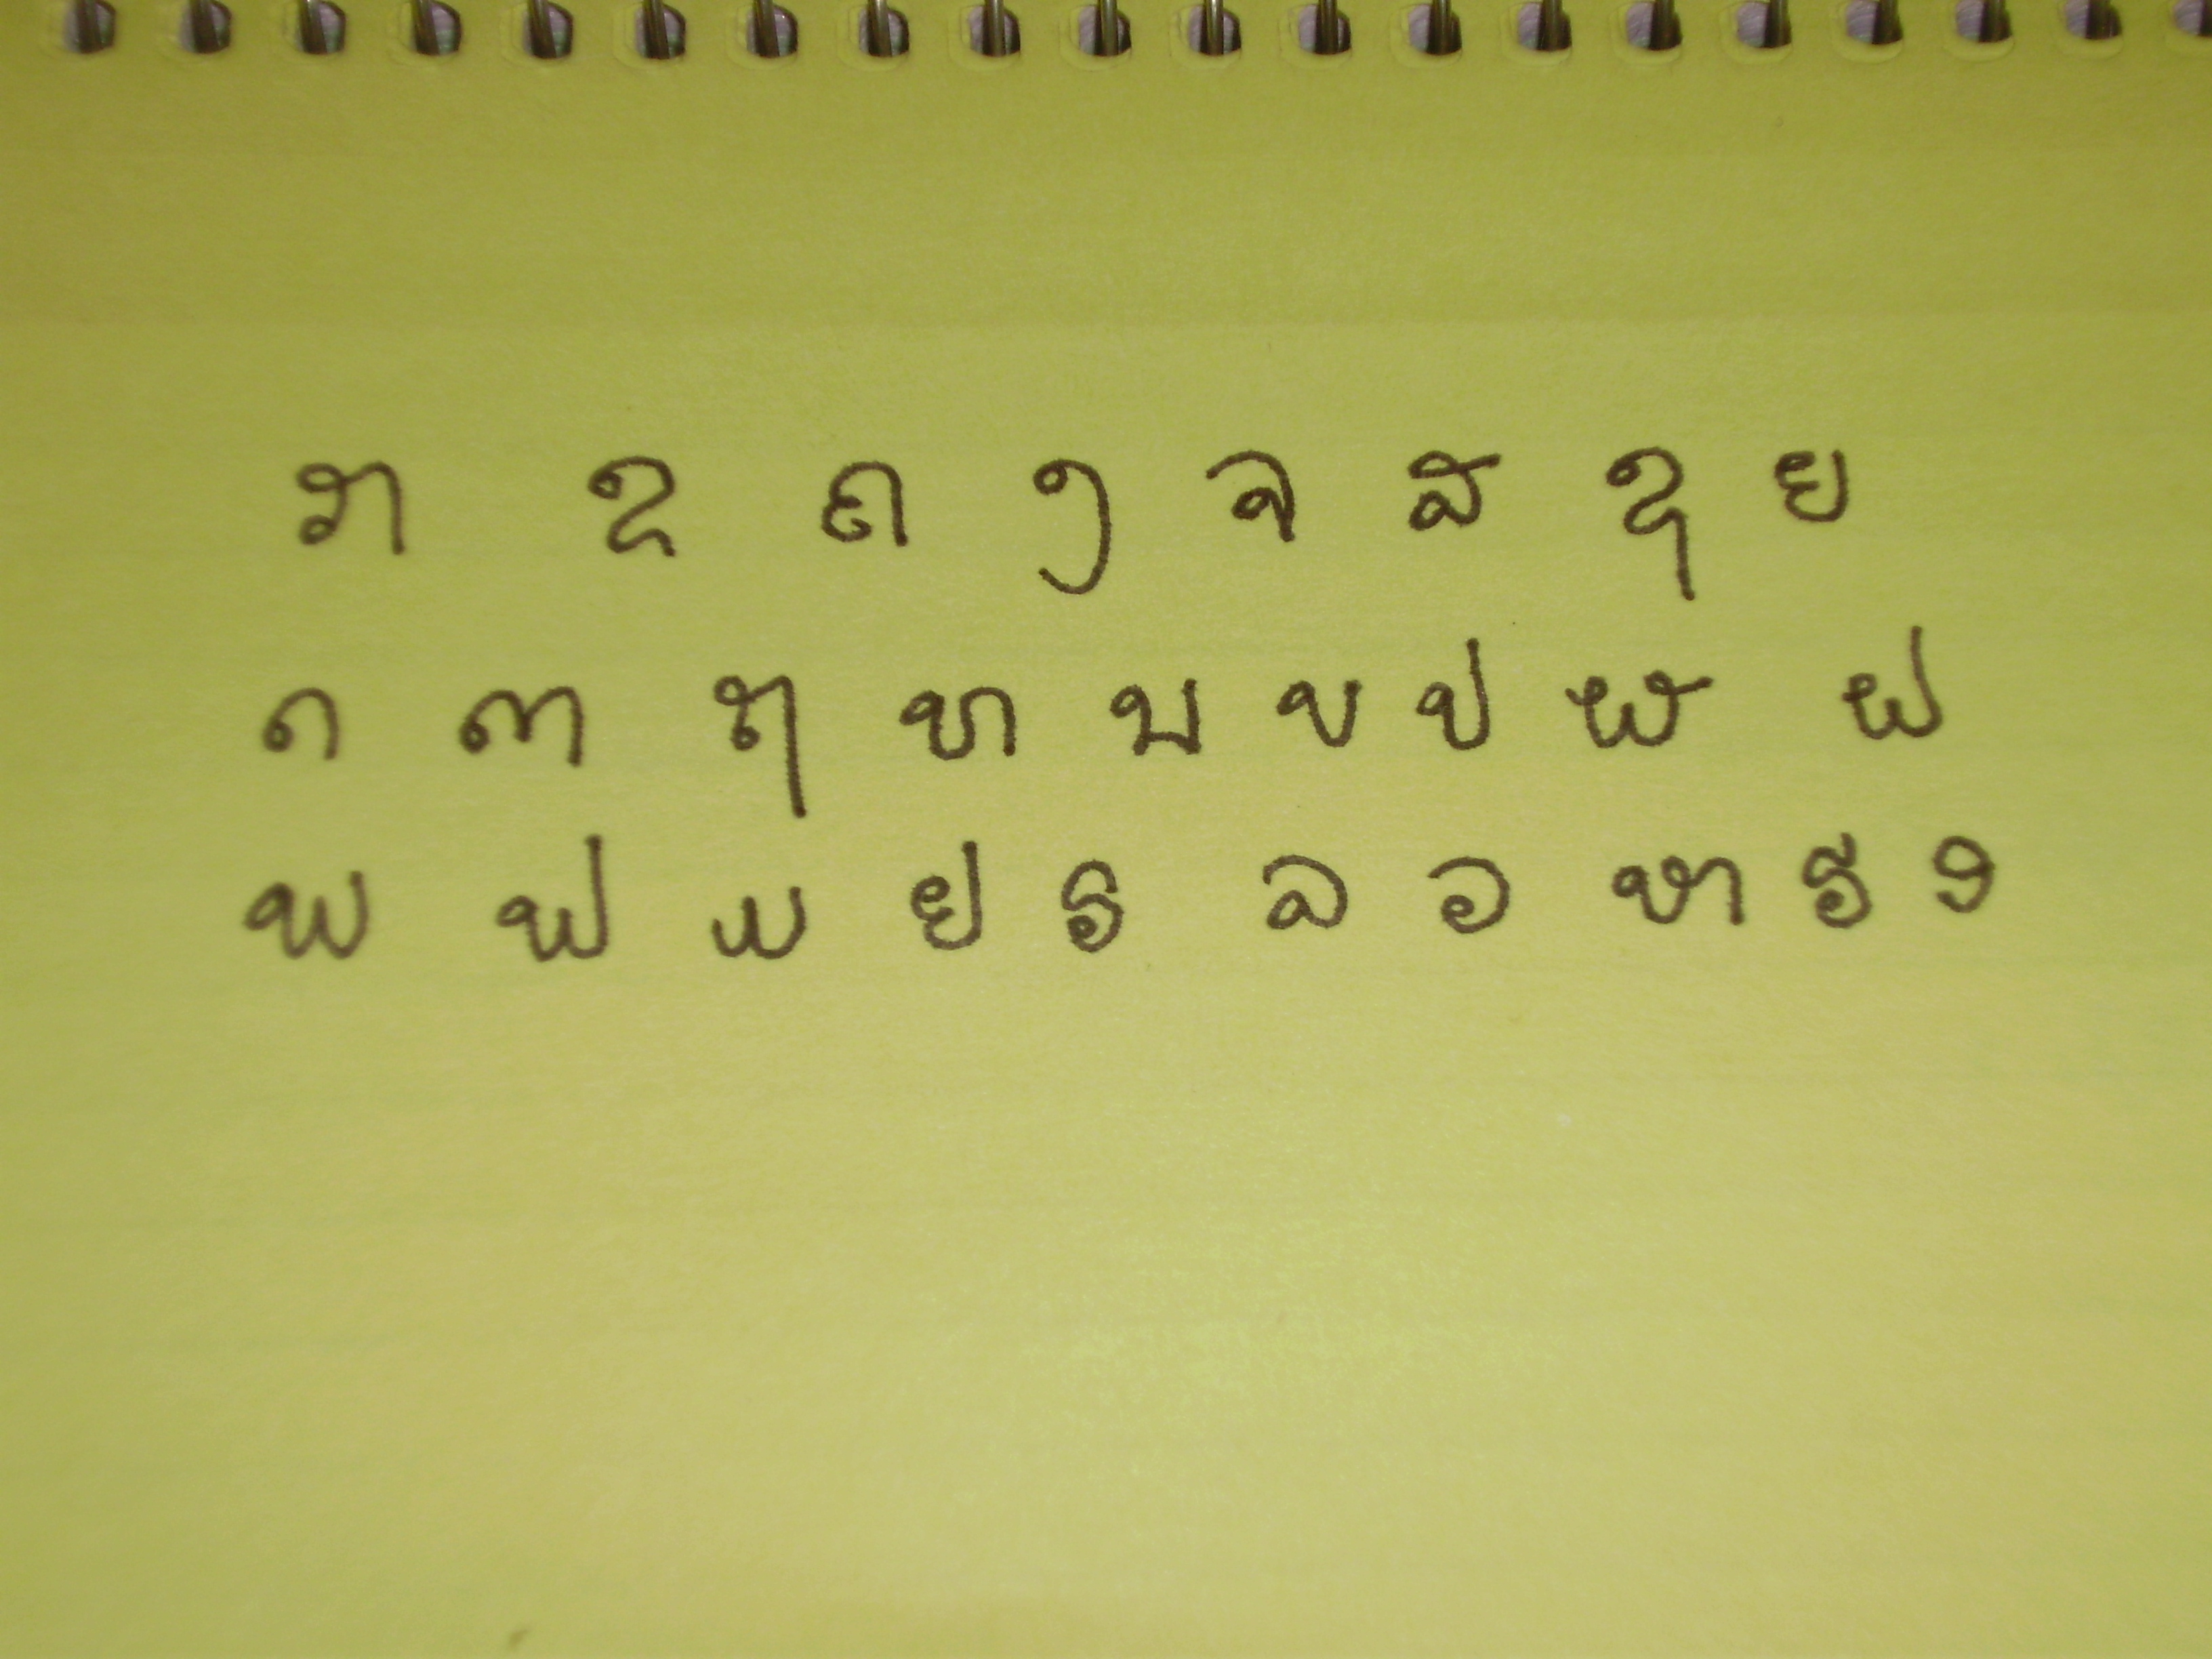 ກ ຂ ຄ ງ ຈ ສ ຊ ຍ
ດ ຕ ຖ ທ ນ ບ ປ ຜ ຝ
ພ ຟ ມ ຢ ຣ ລ ວ ຫ ຮ ອ